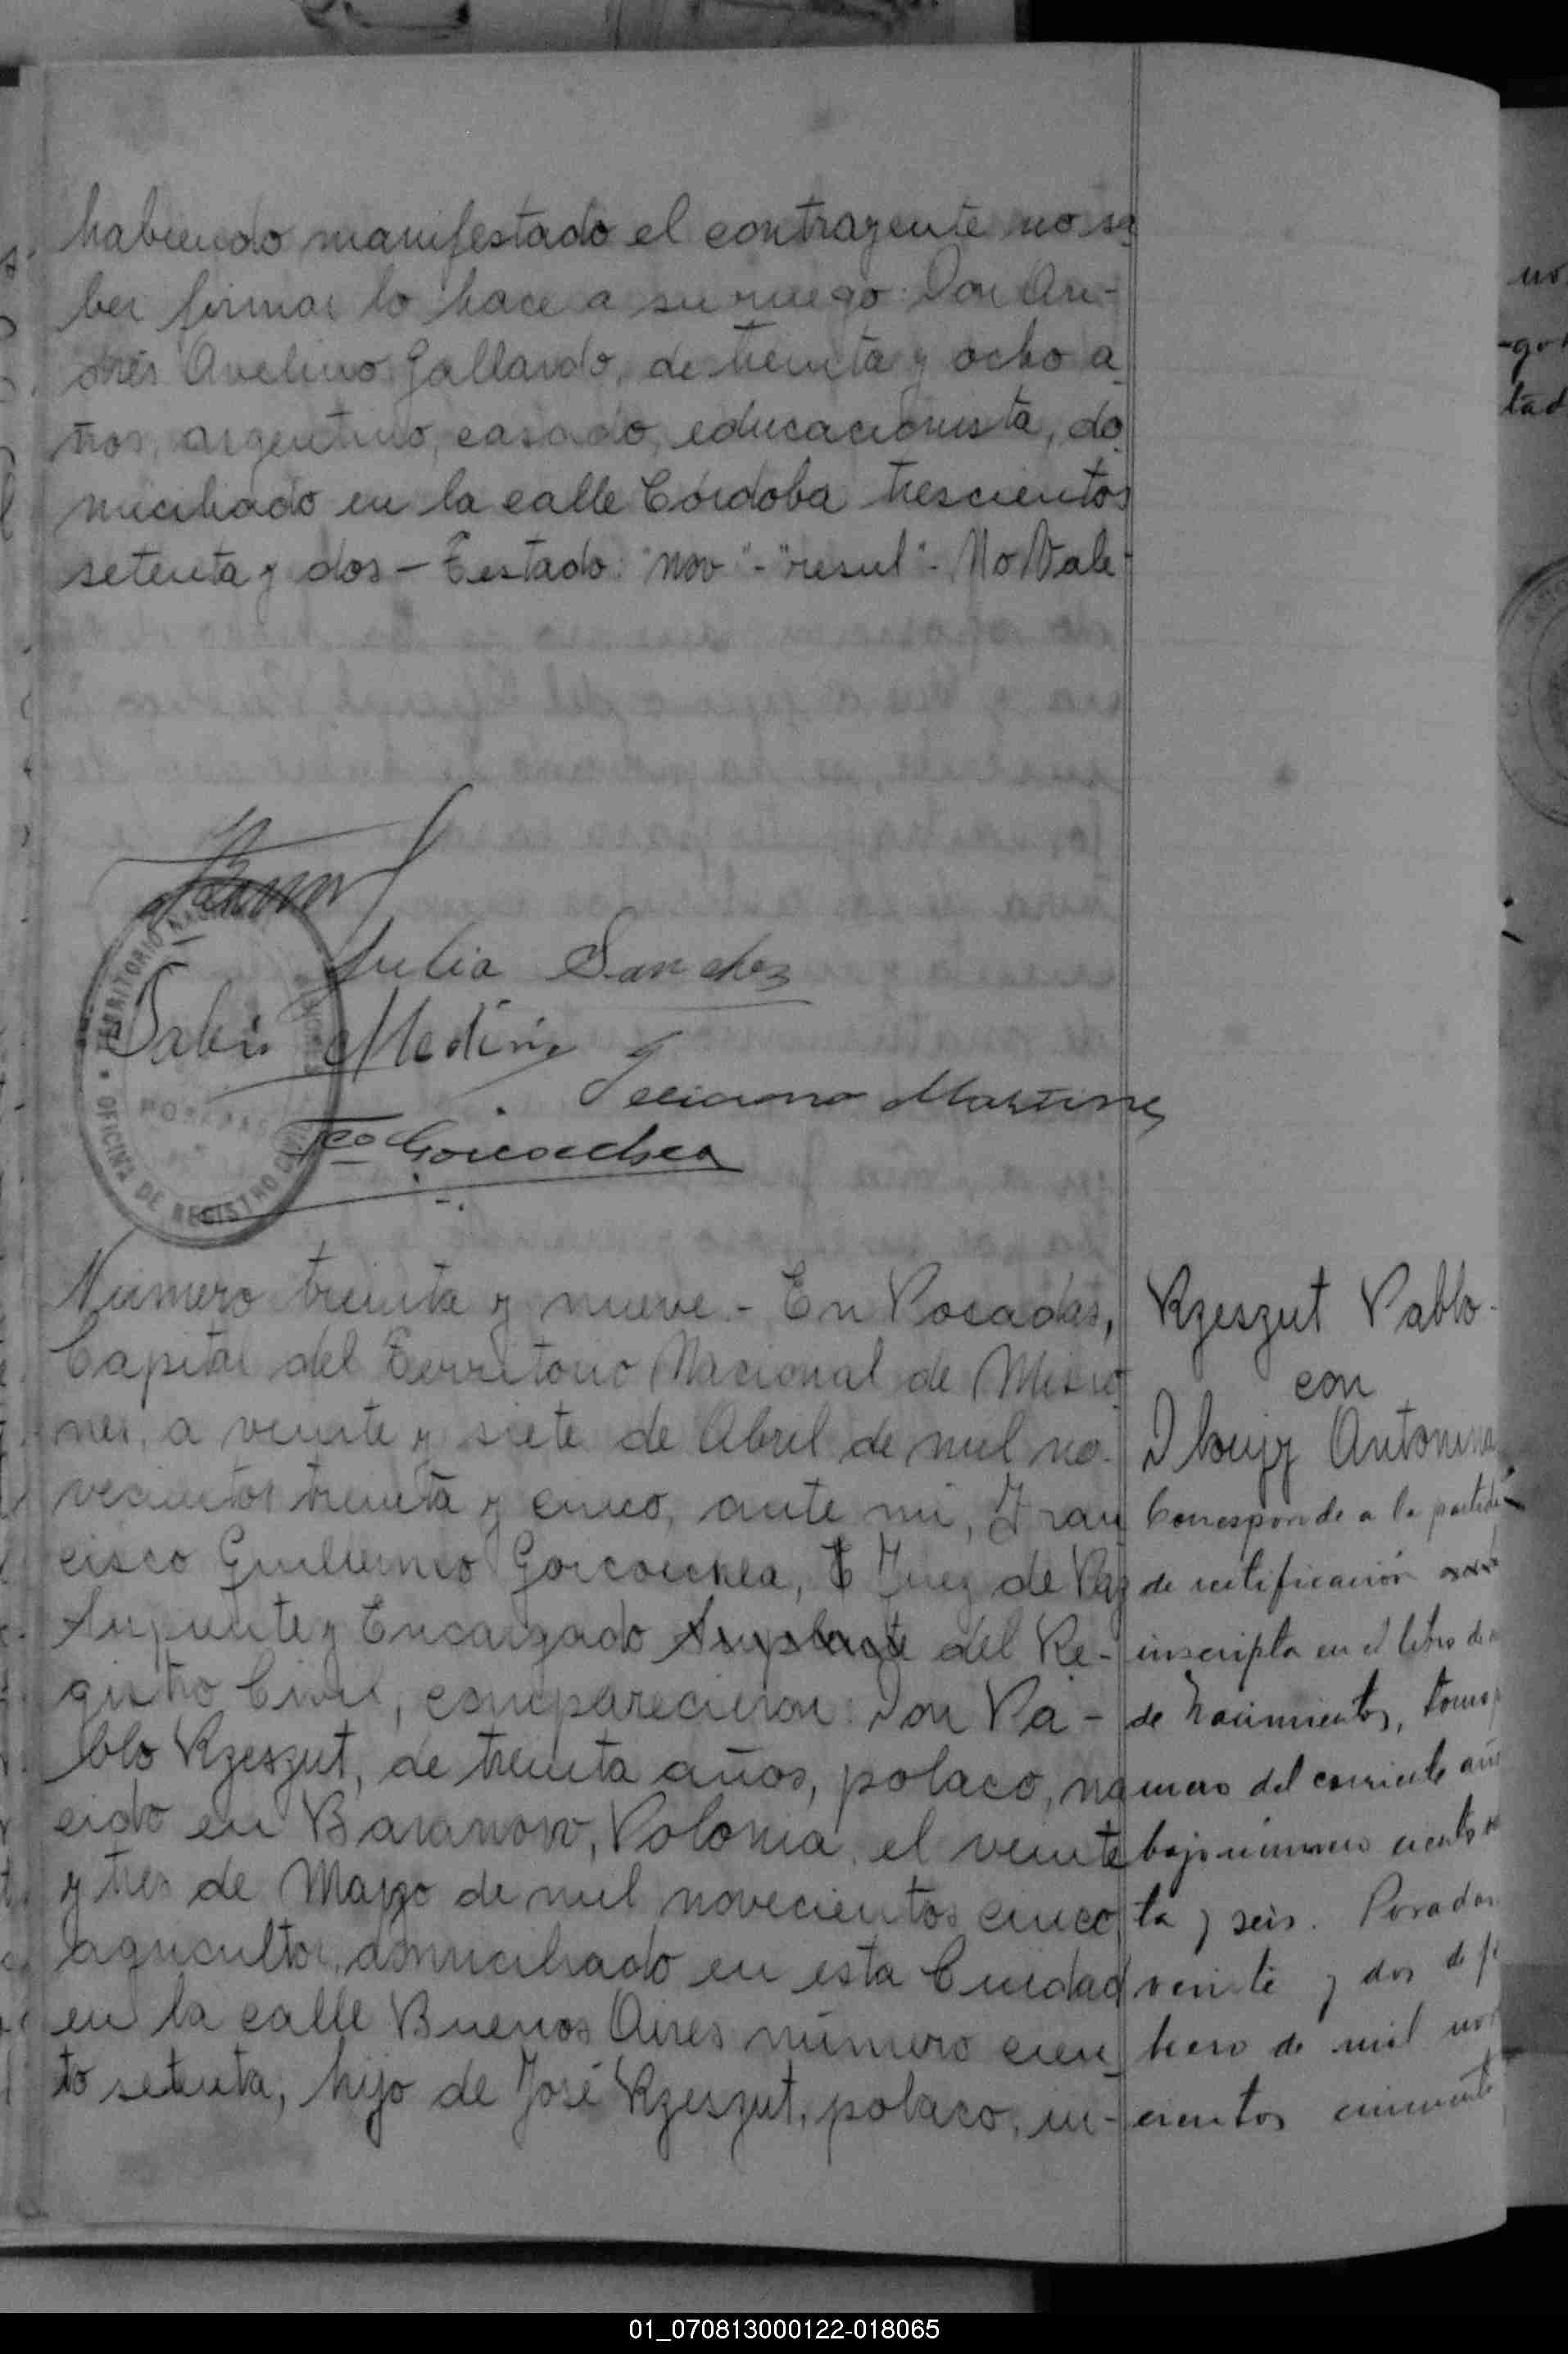 habiendo manifestado el contrayente no sa
ber firmar lo hace a su ruego Don An-
drés Avelino Gallardo, de treinta y ocho a
ños, argentino, casado, educacionista, do
miciliado en la calle Córdoba trescientos
setenta y dos - Testado: "nov" - "resul" - No Vale-
Julia Sanchez
Medina
Feliciano Martinez
Fco Goicoechea
TERRITORIO
POSADAS
OFICINA DE REGISTRO CIVIL
Número treinta y nueve. - En Posadas,
Capital del Territorio Nacional de Misio
nes, a veinte y siete de Abril de mil no-
vecientos treinta y cinco, ante mi, Fran
cisco Guillermo Goicoechea, Juez de Paz
Suplente y Encargado Suplente del Re-
gistro Civil, comparecieron: Don Pa-
blo Rzeszut, de treinta años, polaco, na
cido en Baranow, Polonia, el veinte
y tres de Mayo de mil novecientos cinco,
agricultor, domiciliado en esta Ciudad
en la calle Buenos Aires número cien
to setenta, hijo de José Rzeszut, polaco, in-
Rzeszut Pablo-
con
Antonina
Corresponde a la partida
de rectificación
inscripta en el libro de
de Nacimientos, tomo
mero del corriente año
bajo número ciento
ta y seis. Posadas
veinte y dos de fe
brero de mil nov
cientos cincuenta
no
-go
tad
01_070813000122-018065